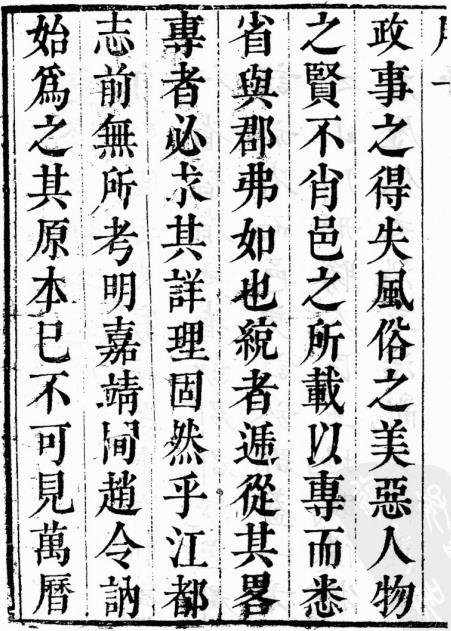 政事之得失風俗之美惡人物
之賢不肖邑之所載以專而悉
省與郡弗如也統者遞從其畧
專者必求其詳理固然乎江都
志前無所考明嘉靖間趙令訥
始爲之其原本已不可見萬曆